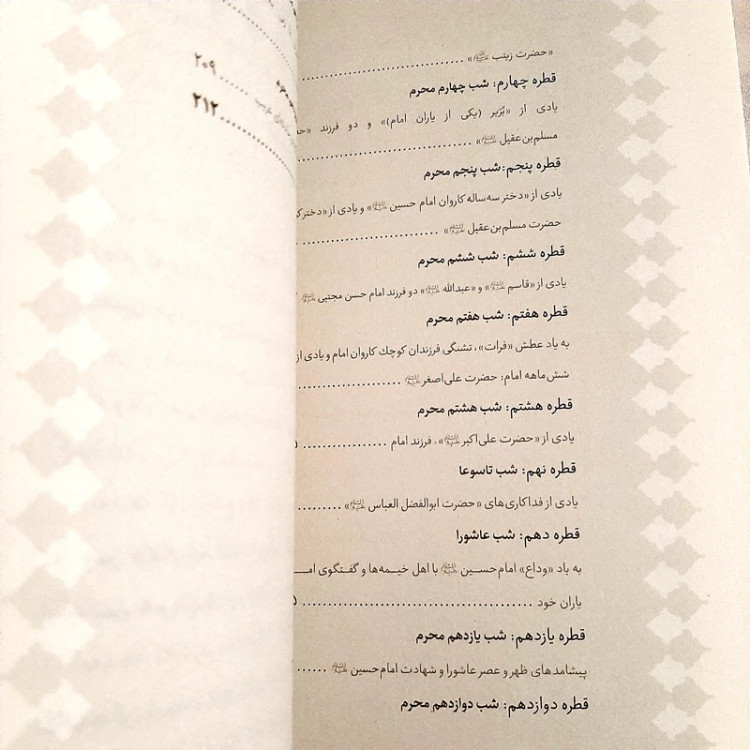 «حضرت زینب ﷷ» ........................
قطره چهارم: شب چهارم محرم
یادی از «بُرَیر (یکی از یاران امام)» و دو فرزند
مسلم‌بن‌عقیل» ........................
قطره پنجم: شب پنجم محرم
یادی از «دختر سه‌ساله کاروان امام حسین» و یادی از «دختر
حضرت مسلم‌بن‌عقیل» ........................
قطره ششم: شب ششم محرم
یادی از «قاسم» و «عبدالله» دو فرزند امام حسن مجتبی
قطره هفتم: شب هفتم محرم
به یاد عطش «فرات»، تشنگی فرزندان کوچک کاروان امام و یادی از
شش‌ماهه امام: حضرت علی‌اصغر ................
قطره هشتم: شب هشتم محرم
یادی از «حضرت علی‌اکبر»، فرزند امام ................
قطره نهم: شب تاسوعا
یادی از فداکاری‌های «حضرت ابوالفضل العباس» .........
قطره دهم: شب عاشورا
به یاد «وداع» امام‌حسین با اهل خیمه‌ها و گفتگوی
یاران خود ........................................
قطره یازدهم: شب یازدهم محرم
پیشامدهای ظهر و عصر عاشورا و شهادت امام‌حسین ......
قطره دوازدهم: شب دوازدهم محرم
۲۰۹
۲۱۲